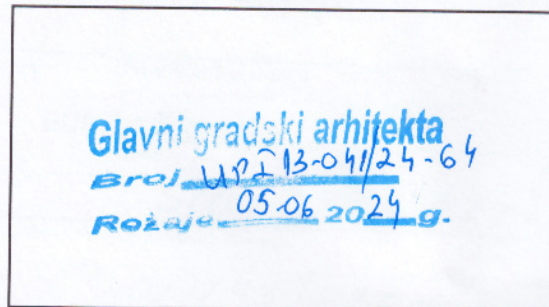 Glavni gradski arhitekta
Broj UPI 13-041/24-64
Rožaje 05-06 2024 g.